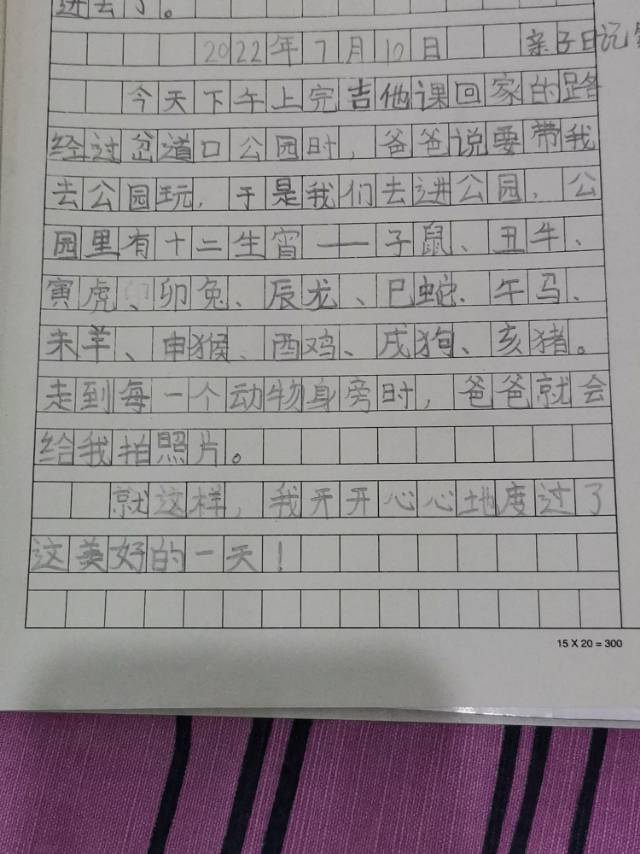 进去了。
2022年7月10日 亲子日记
今天下午上完吉他课回家的路
经过岔道口公园时，爸爸说要带我
去公园玩，于是我们去进公园，公
园里有十二生宵——子鼠、丑牛、
寅虎、卯兔、辰龙、巳蛇、午马、
未羊、申猴、酉鸡、戌狗、亥猪。
走到每一个动物身旁时，爸爸就会
给我拍照片。
就这样，我开开心心地度过了
这美好的一天！
15 X 20 = 300